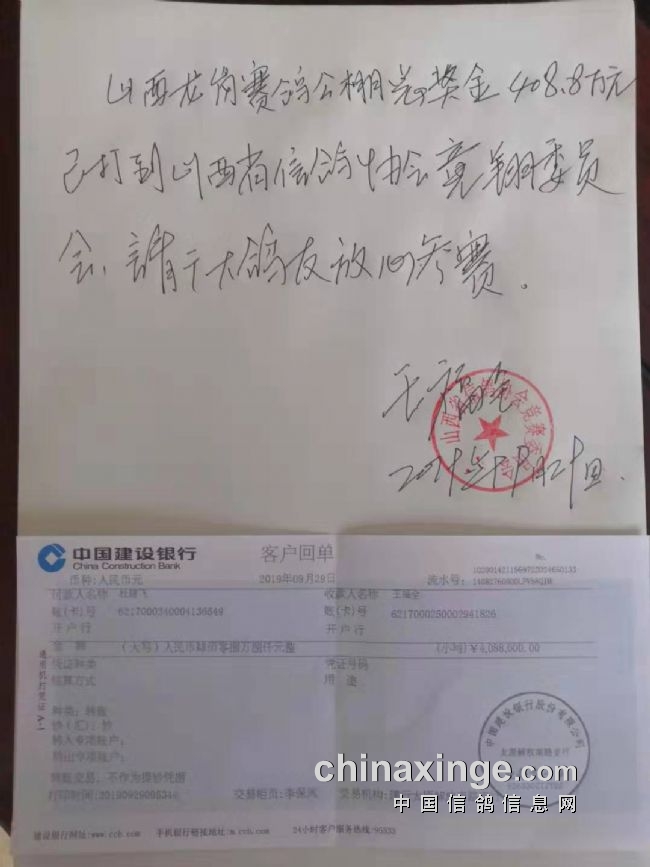 山西龙岗赛鸽公棚总奖金408.8万元
已打到山西省信鸽协会竞翔委员
会、請广大鸽友放心参赛.
王福全
中国建设银行
China Construction Bank
客户回单
No.
币种:人民币元
2019年09月29日
流水号:
付款人名称
收款人名称 王福全
账(卡)号 6217000340004136649
账(卡)号 6217000250002941826
开户行
开户行
金额 (大写)人民币肆佰零捌万捌仟元整
(小写)¥4,088,000.00
凭证种类
凭证号码
结算方式
用途
通用机打凭证 A-1
种类:转账
钞(汇):钞
转入专项账户:
转出专项账户:
转账交易,不作为提钞凭据
打印时间:20190929095346
交易柜员:李保凤
交易机构:
中国建设银行股份有限公司
建设银行网址:www.ccb.com
手机银行链接地址:m.ccb.com
24小时客户服务热线:95533
chinaxinge.com
中国信鸽信息网